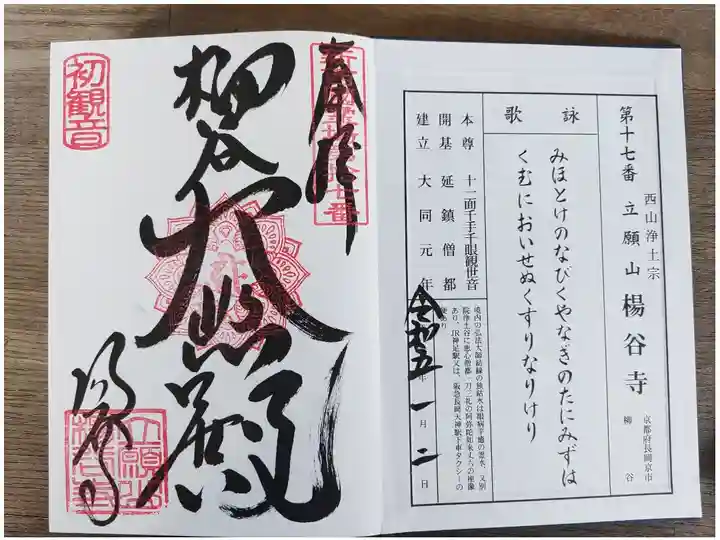 西山浄土宗
第十七番 立願山 楊谷寺
京都府長岡京市
柳谷
詠歌
みほとけのなびくやなぎのたにみずは
くむにおいせぬくすりなりけり
本尊 十一面千手千眼観世音
開基 延鎮僧都
建立 大同元年
境内の弘法大師結縁の独鈷水は眼病平癒の霊水、又別
院浄土谷に恵心僧都一刀三礼の阿弥陀如来丈六の座像
あり、JR神足駅又は、阪急長岡天神駅下車タクシーの
便あり
令和五年一月二日
奉拝
柳谷大悲殿
楊谷寺
初観音